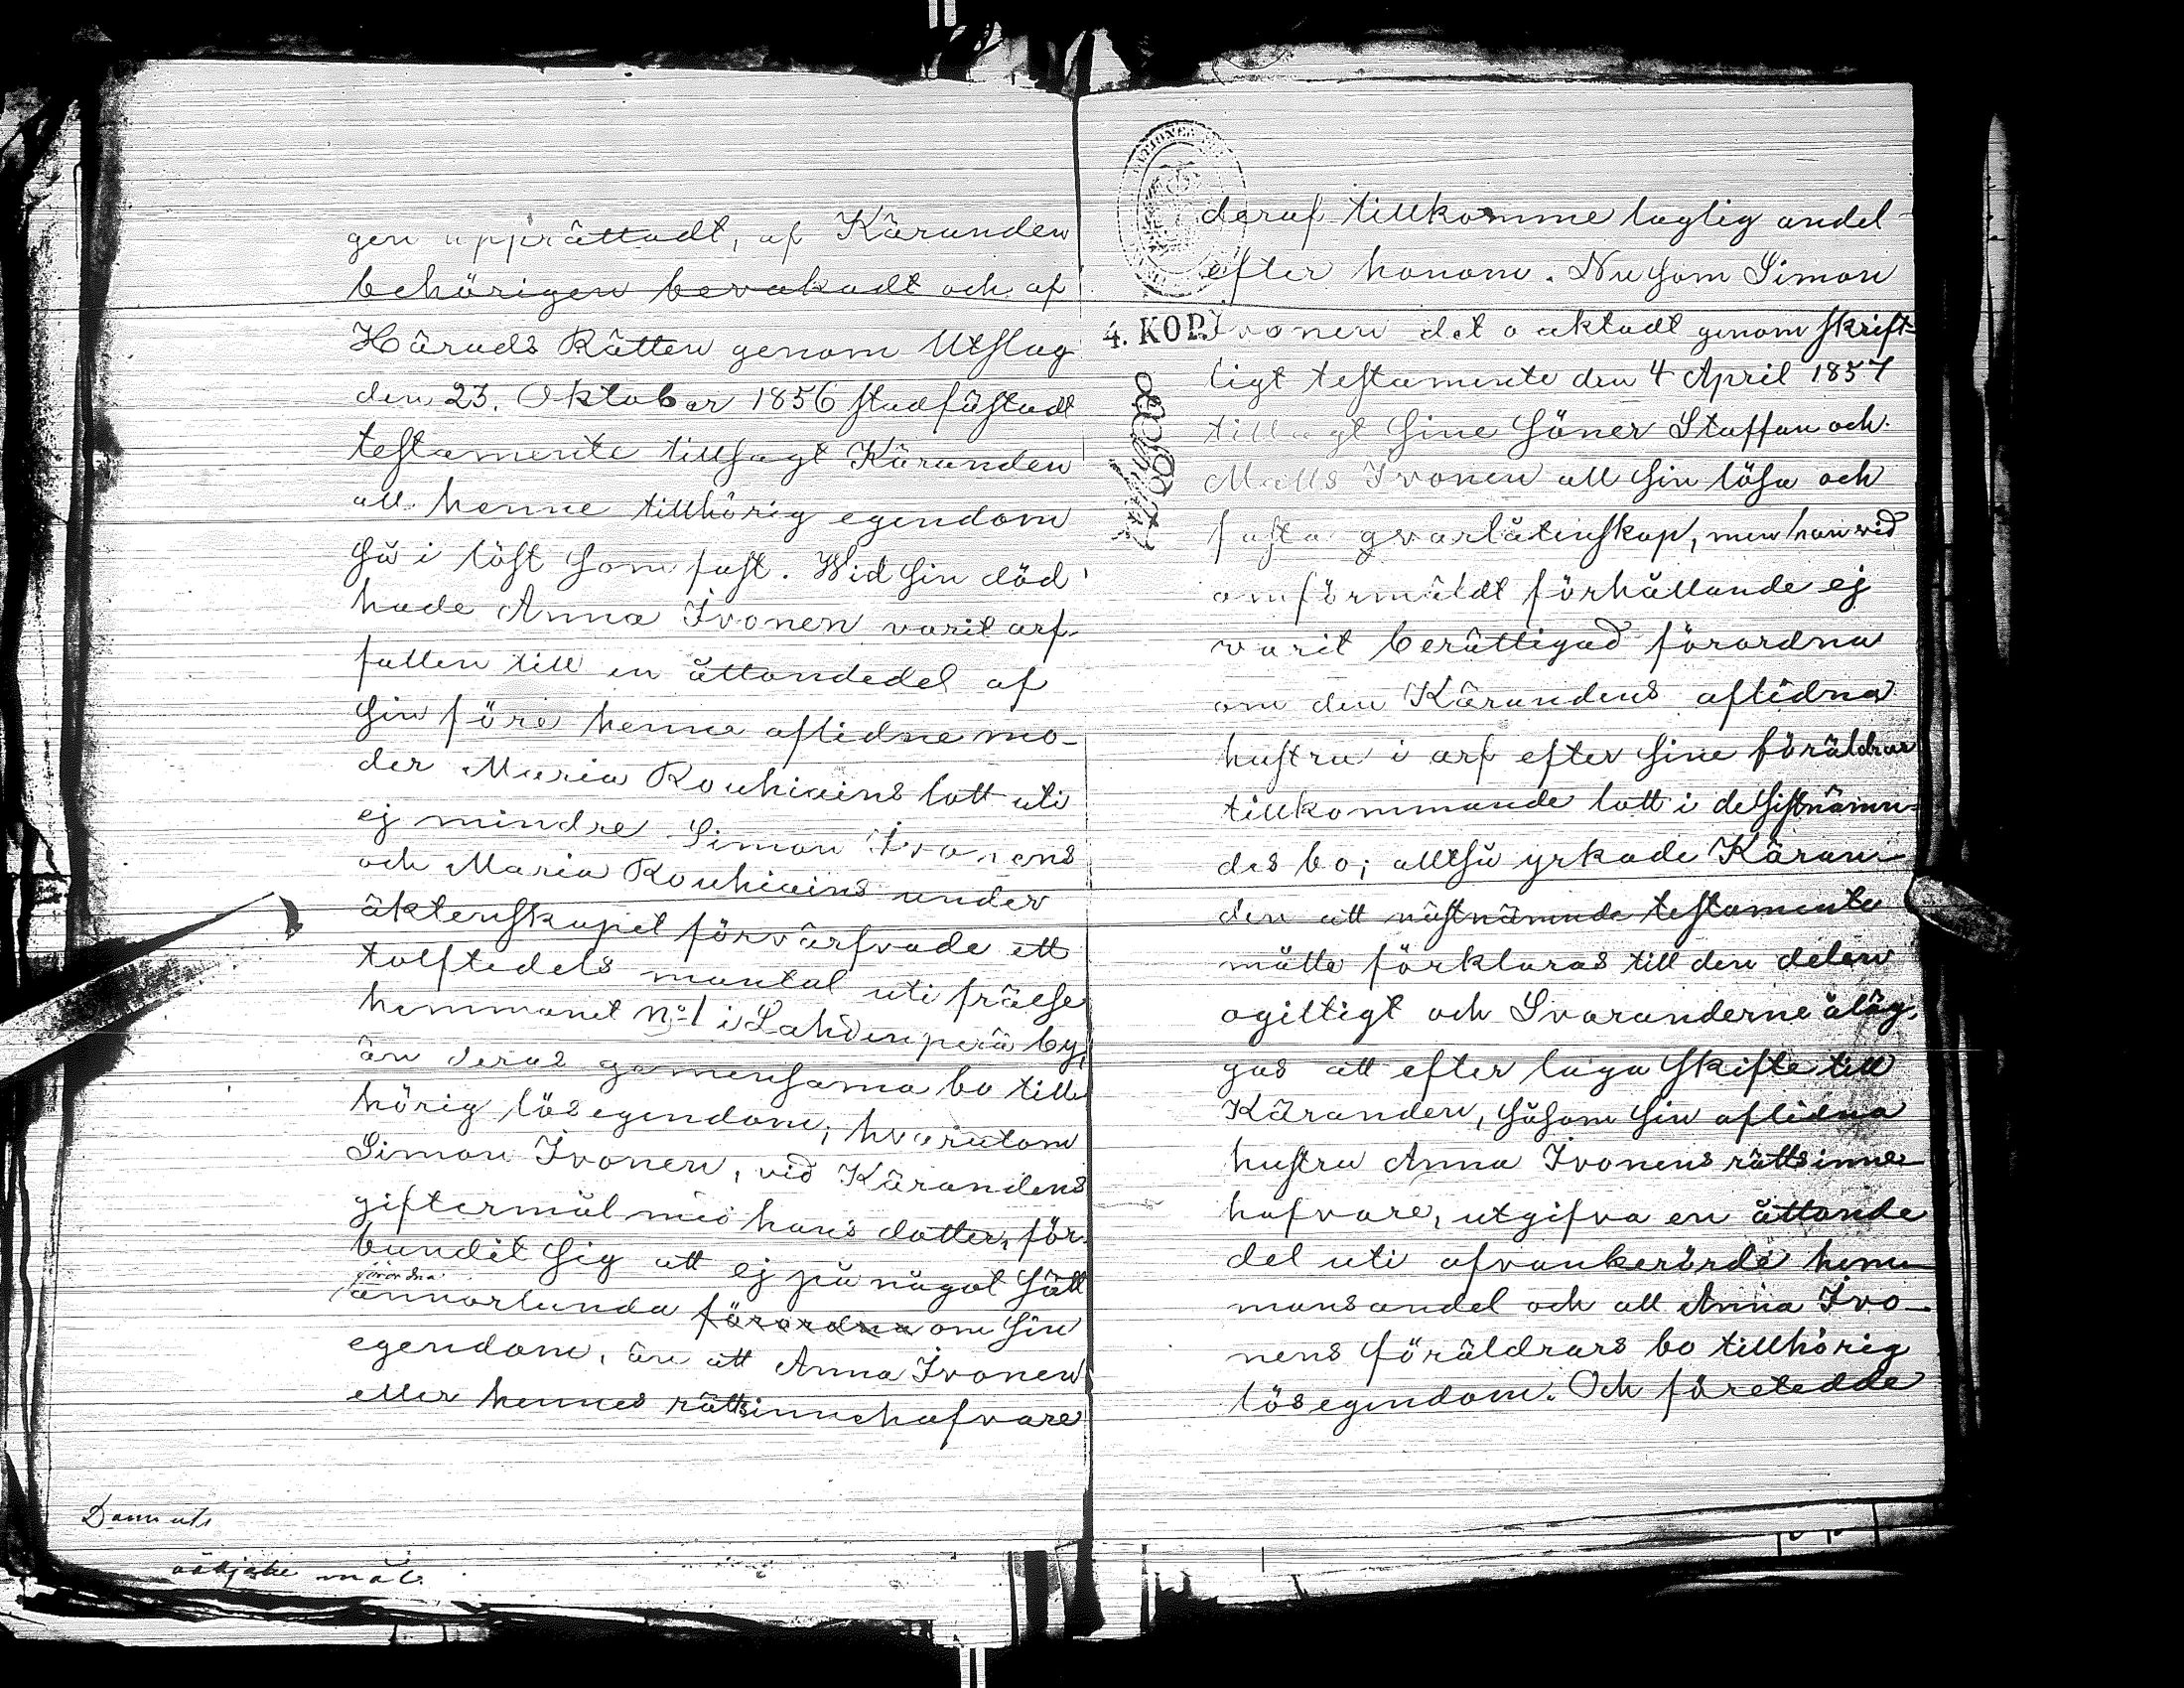 gen upprättadt, af Käranden
behörigen bevakadt och af
Härads Rätten genom Utslag
den 23. Oktober 1856 stadfästadt
testamente tillsagt Käranden
all henne tillhörig egendom
så i löst som fast. Wid sin död
hade Anna Ivonen varit arf-
fallen till en åttondedel af
sin före henne aflidne mo-
der Maria Rouhiains lott uti
ej mindre Simon Ivonens
och Maria Rouhiains under
äktenskapet förvärfvade ett
tolftedels mantal uti frälse
hemmanet No 1 i Lahdenperä by,
än deras gemensama bo till-
hörig lösegendom; hvarutom
Simon Ivonen, vid Kärandens
giftermål med hans dotter, för-
bundit sig att ej på något sätt
förordna
annorlunda förordna om sin
egendom, än att Anna Ivonen
eller hennes rättsinnehafvare
mål.
deraf tillkomme laglig andel
efter honom. Nu som Simon
4. KOP.
Ivonen det oaktadt genom skrift-
ligt testamente den 4 April 1857
tillagt sine söner Staffan och
Matts Ivonen all sin lösa och
fasta qvarlåtenskap, men han vid
omförmäldt förhållande ej
varit berättigad förordna
om den Kärandens aflidna
hustru i arf efter sine föräldrar
tillkommande lott i de sistnämn-
des bo; alltså yrkade Käran-
den att nästnämnde testamente
måtte förklaras till den delen
ogiltigt och Svaranderne åläg-
gas att efter laga skifte till
Käranden, såsom sin aflidna
hustru Anna Ivonens rättsinne-
hafvare, utgifva en åttonde
del uti ofvanberörde hem-
mansandel och all Anna Ivo-
nens föräldrars bo tillhörig
lösegendom. Och företedde